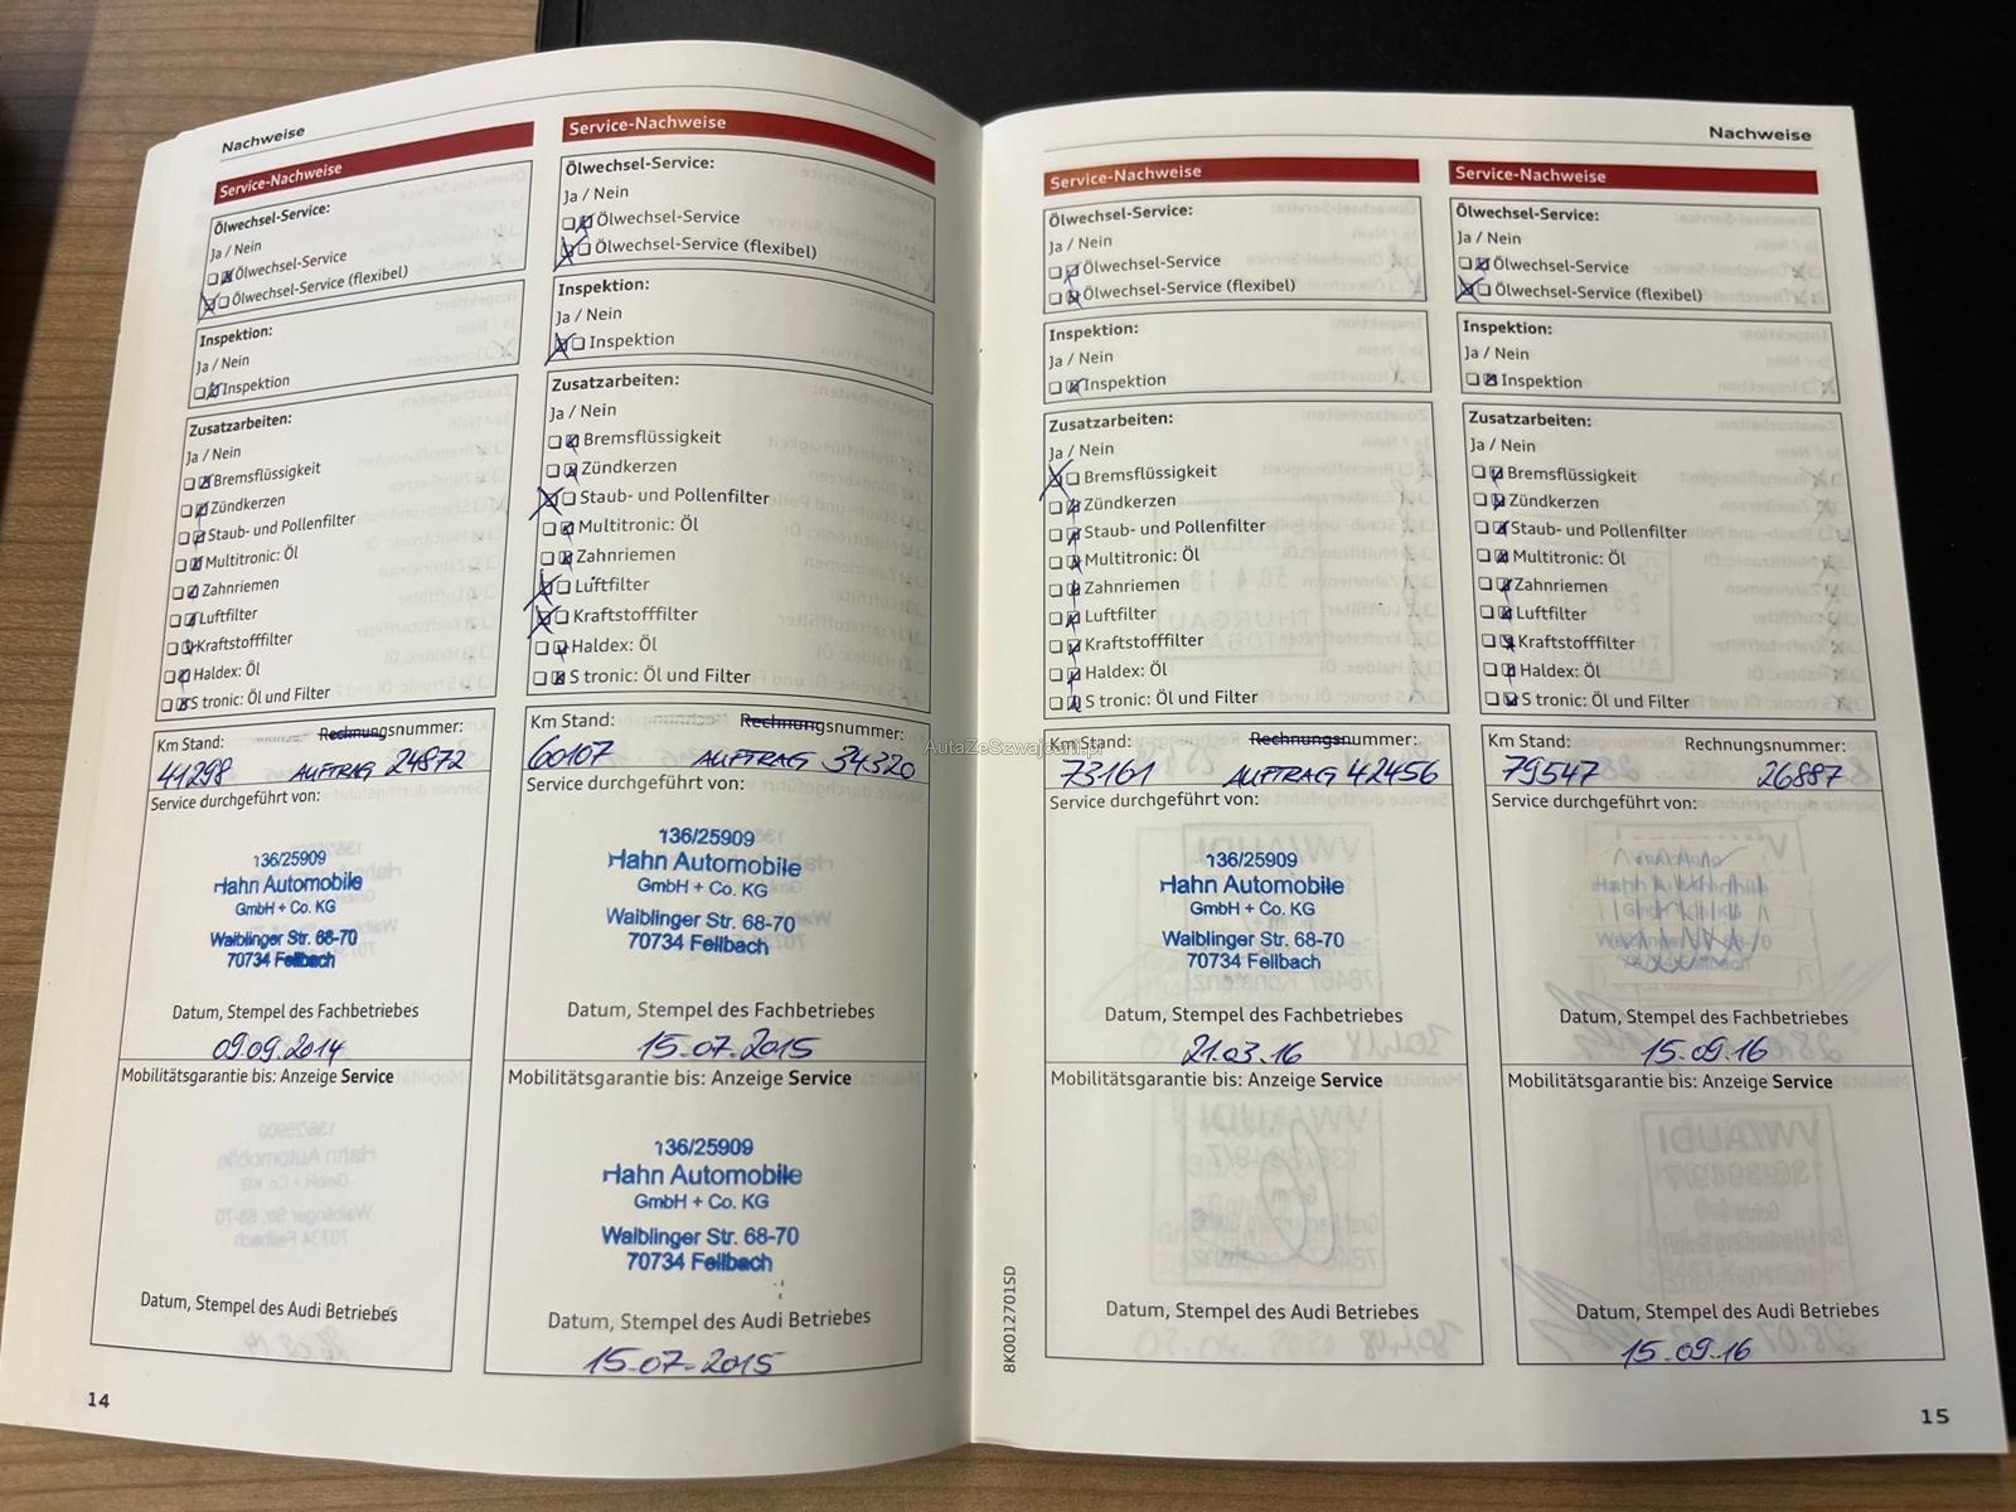 Nachweise
Service-Nachweise
Ölwechsel-Service:
Ja / Nein
Ölwechsel-Service
Ölwechsel-Service (flexibel)
Inspektion:
Ja / Nein
Inspektion
Zusatzarbeiten:
Ja / Nein
Bremsflüssigkeit
Zündkerzen
Staub- und Pollenfilter
Multitronic: Öl
Zahnriemen
Luftfilter
Kraftstofffilter
Haldex: Öl
S tronic: Öl und Filter
Km Stand: Rechnungsnummer:
41298 AUFTRAG 24872
Service durchgeführt von:
136/25909
Hahn Automobile
GmbH + Co. KG
Waiblinger Str. 68-70
70734 Fellbach
Datum, Stempel des Fachbetriebes
09.09.2014
Mobilitätsgarantie bis: Anzeige Service
Datum, Stempel des Audi Betriebes
14
Service-Nachweise
Ölwechsel-Service:
Ja / Nein
Ölwechsel-Service
Ölwechsel-Service (flexibel)
Inspektion:
Ja / Nein
Inspektion
Zusatzarbeiten:
Ja / Nein
Bremsflüssigkeit
Zündkerzen
Staub- und Pollenfilter
Multitronic: Öl
Zahnriemen
Luftfilter
Kraftstofffilter
Haldex: Öl
S tronic: Öl und Filter
Km Stand: Rechnungsnummer:
60107 AUFTRAG 34320
Service durchgeführt von:
136/25909
Hahn Automobile
GmbH + Co. KG
Waiblinger Str. 68-70
70734 Fellbach
Datum, Stempel des Fachbetriebes
15.07.2015
Mobilitätsgarantie bis: Anzeige Service
136/25909
Hahn Automobile
GmbH + Co. KG
Waiblinger Str. 68-70
70734 Fellbach
Datum, Stempel des Audi Betriebes
15.07.2015
AutaZeSzwajcarii.pl
Nachweise
Service-Nachweise
Ölwechsel-Service:
Ja / Nein
Ölwechsel-Service
Ölwechsel-Service (flexibel)
Inspektion:
Ja / Nein
Inspektion
Zusatzarbeiten:
Ja / Nein
Bremsflüssigkeit
Zündkerzen
Staub- und Pollenfilter
Multitronic: Öl
Zahnriemen
Luftfilter
Kraftstofffilter
Haldex: Öl
S tronic: Öl und Filter
Km Stand: Rechnungsnummer:
73161 AUFTRAG 42456
Service durchgeführt von:
136/25909
Hahn Automobile
GmbH + Co. KG
Waiblinger Str. 68-70
70734 Fellbach
Datum, Stempel des Fachbetriebes
21.03.16
Mobilitätsgarantie bis: Anzeige Service
Datum, Stempel des Audi Betriebes
8K0012701SD
Service-Nachweise
Ölwechsel-Service:
Ja / Nein
Ölwechsel-Service
Ölwechsel-Service (flexibel)
Inspektion:
Ja / Nein
Inspektion
Zusatzarbeiten:
Ja / Nein
Bremsflüssigkeit
Zündkerzen
Staub- und Pollenfilter
Multitronic: Öl
Zahnriemen
Luftfilter
Kraftstofffilter
Haldex: Öl
S tronic: Öl und Filter
Km Stand: Rechnungsnummer:
79547 26887
Service durchgeführt von:
Datum, Stempel des Fachbetriebes
15.09.16
Mobilitätsgarantie bis: Anzeige Service
Datum, Stempel des Audi Betriebes
15.09.16
15